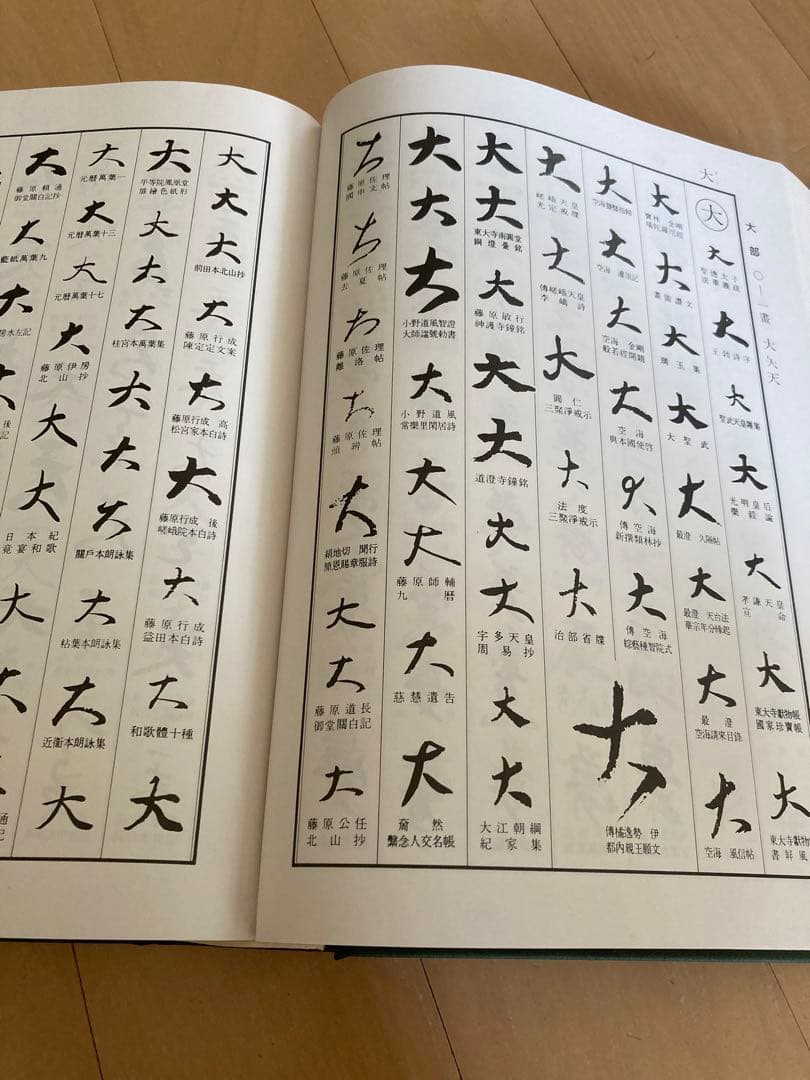 大部〇—一畫
大
大
大
聖德太子
法華義疏
大
王勃詩序
大
聖武天皇雜集
大
光明皇后
樂毅論
大
孝謙天皇
宣命
大
東大寺獻物帳
國家珍寶帳
大
東大寺獻物
書屏風
大
大
畫圖讃文
大
琱玉集
大
大聖武
大
最澄 久隔帖
大
最澄 天台法
華宗年分縁起
大
最澄
空海請來目錄
大
空海 風信帖
大
空海聾瞽指歸
大
空海 灌頂記
大
空海 金剛
般若經開題
大
空海
與本國使啓
大
傳空海
新撰類林抄
大
傳空海
綜藝種智院式
大
嵯峨天皇
光定戒牒
大
傳嵯峨天皇
李嶠詩
大
圓仁
三聚淨戒示
大
法度
三聚淨戒示
大
治部省牒
大
傳橘逸勢 伊
都内親王願文
大
大
東大寺南圓堂
銅燈臺銘
大
藤原敏行
神護寺鐘銘
大
大
道澄寺鐘銘
大
大
宇多天皇
周易抄
大
大
大江朝綱
紀家集
大
大
大
小野道風智證
大師謚號勅書
大
小野道風
常樂里閑居詩
大
大
藤原師輔
九曆
大
慈慧遺告
大
奝然
繫念人交名帳
大
藤原佐理
國申文帖
大
藤原佐理
去夏帖
大
藤原佐理
離洛帖
大
藤原佐理
頭辨帖
大
絹地切 聞行
簡恩賜章服詩
大
大
藤原道長
御堂關白記
大
藤原公任
北山抄
大
大
大
前田本北山抄
大
藤原行成
陳定定文案
大
藤原行成 高
松宮家本白詩
大
藤原行成 後
嵯峨院本白詩
大
藤原行成
益田本白詩
大
和歌體十種
大
大
平等院鳳凰堂
扉繪色紙形
大
大
大
桂宮本萬葉集
大
大
大
關戶本朗詠集
大
粘葉本朗詠集
大
近衞本朗詠集
大
大
元曆萬葉一
大
元曆萬葉十三
大
元曆萬葉十七
大
藤原伊房
北山抄
大
大
日本紀
竟宴和歌
大
藤原賴通
御堂關白記抄
大
藍紙萬葉九